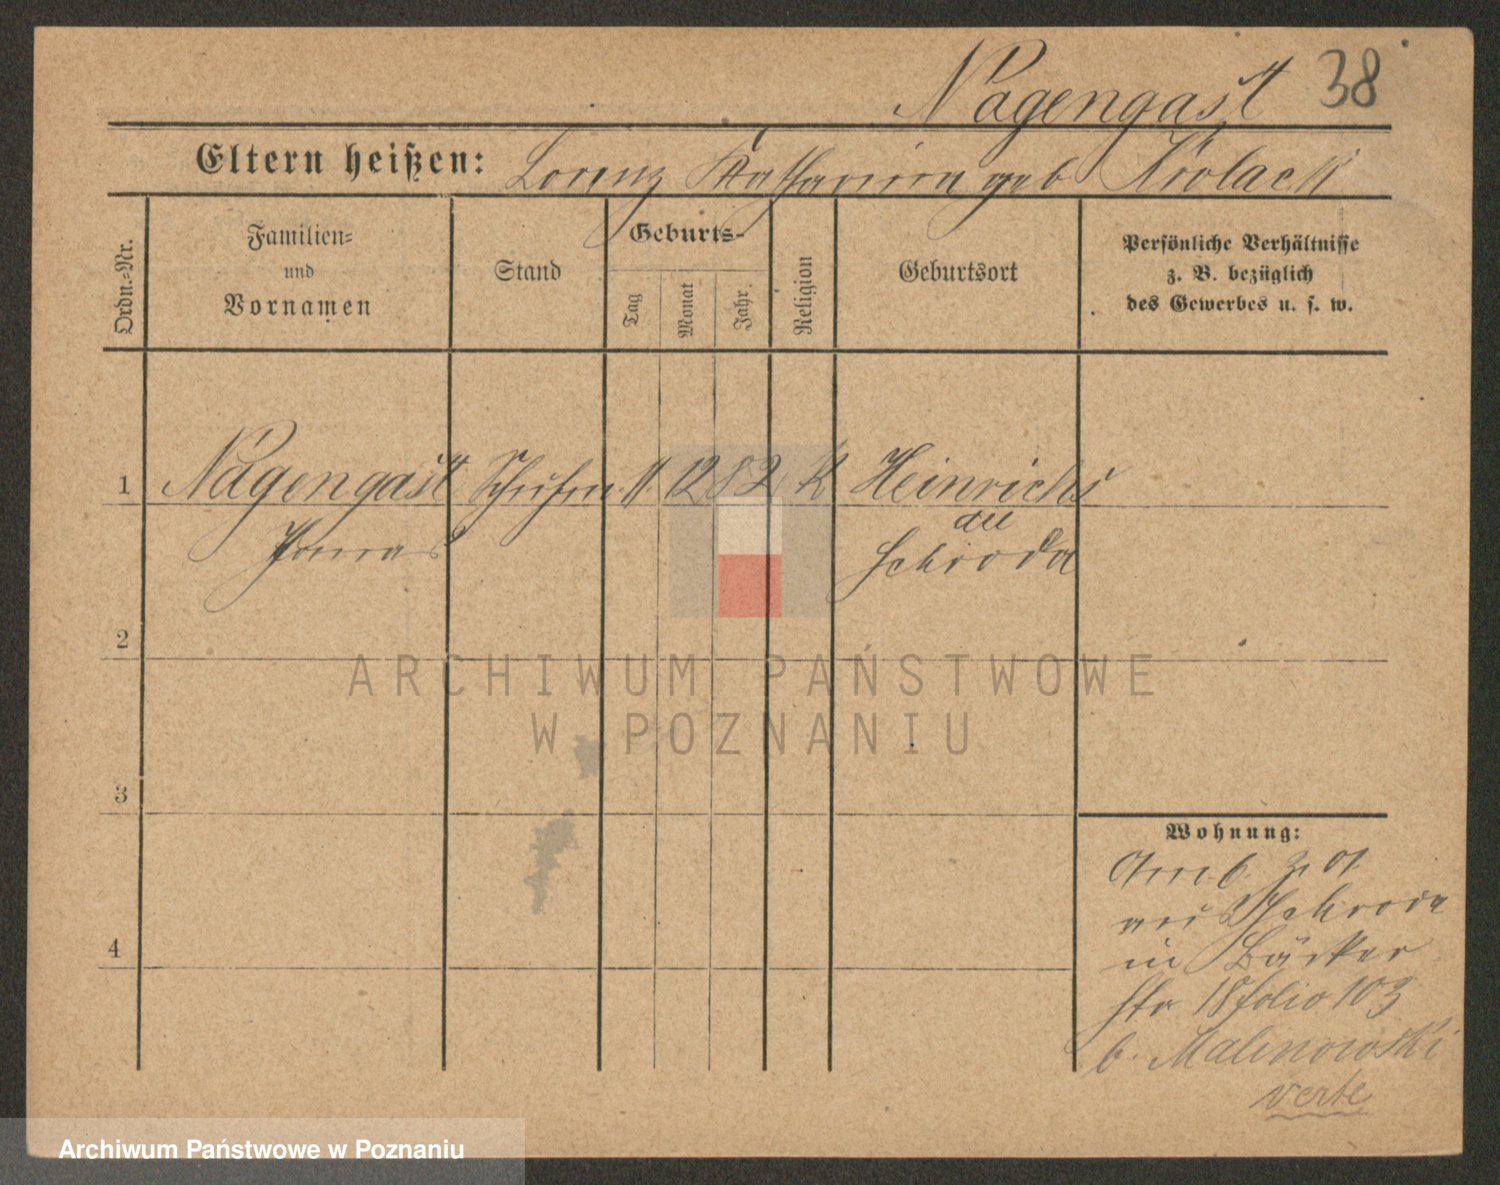 Nagengast 38
Eltern heißen: Lorenz Katharina geb Krolack
Ordn.-Nr.
Familien-
und
Vornamen
Stand
Geburts-
Tag
Monat
Jahr.
Religion
Geburtsort
Persönliche Verhältnisse
z. B. bezüglich
des Gewerbes u. s. w.
1 Nagengast 11 12 82 K Heinrichs
au
Schroda
2
ARCHIWUM PAŃSTWOWE
W POZNANIU
3
Wohnung:
aus Schroda
4
in Bäcker
str 18 folio 103
b. Malinowski
verte
Archiwum Państwowe w Poznaniu